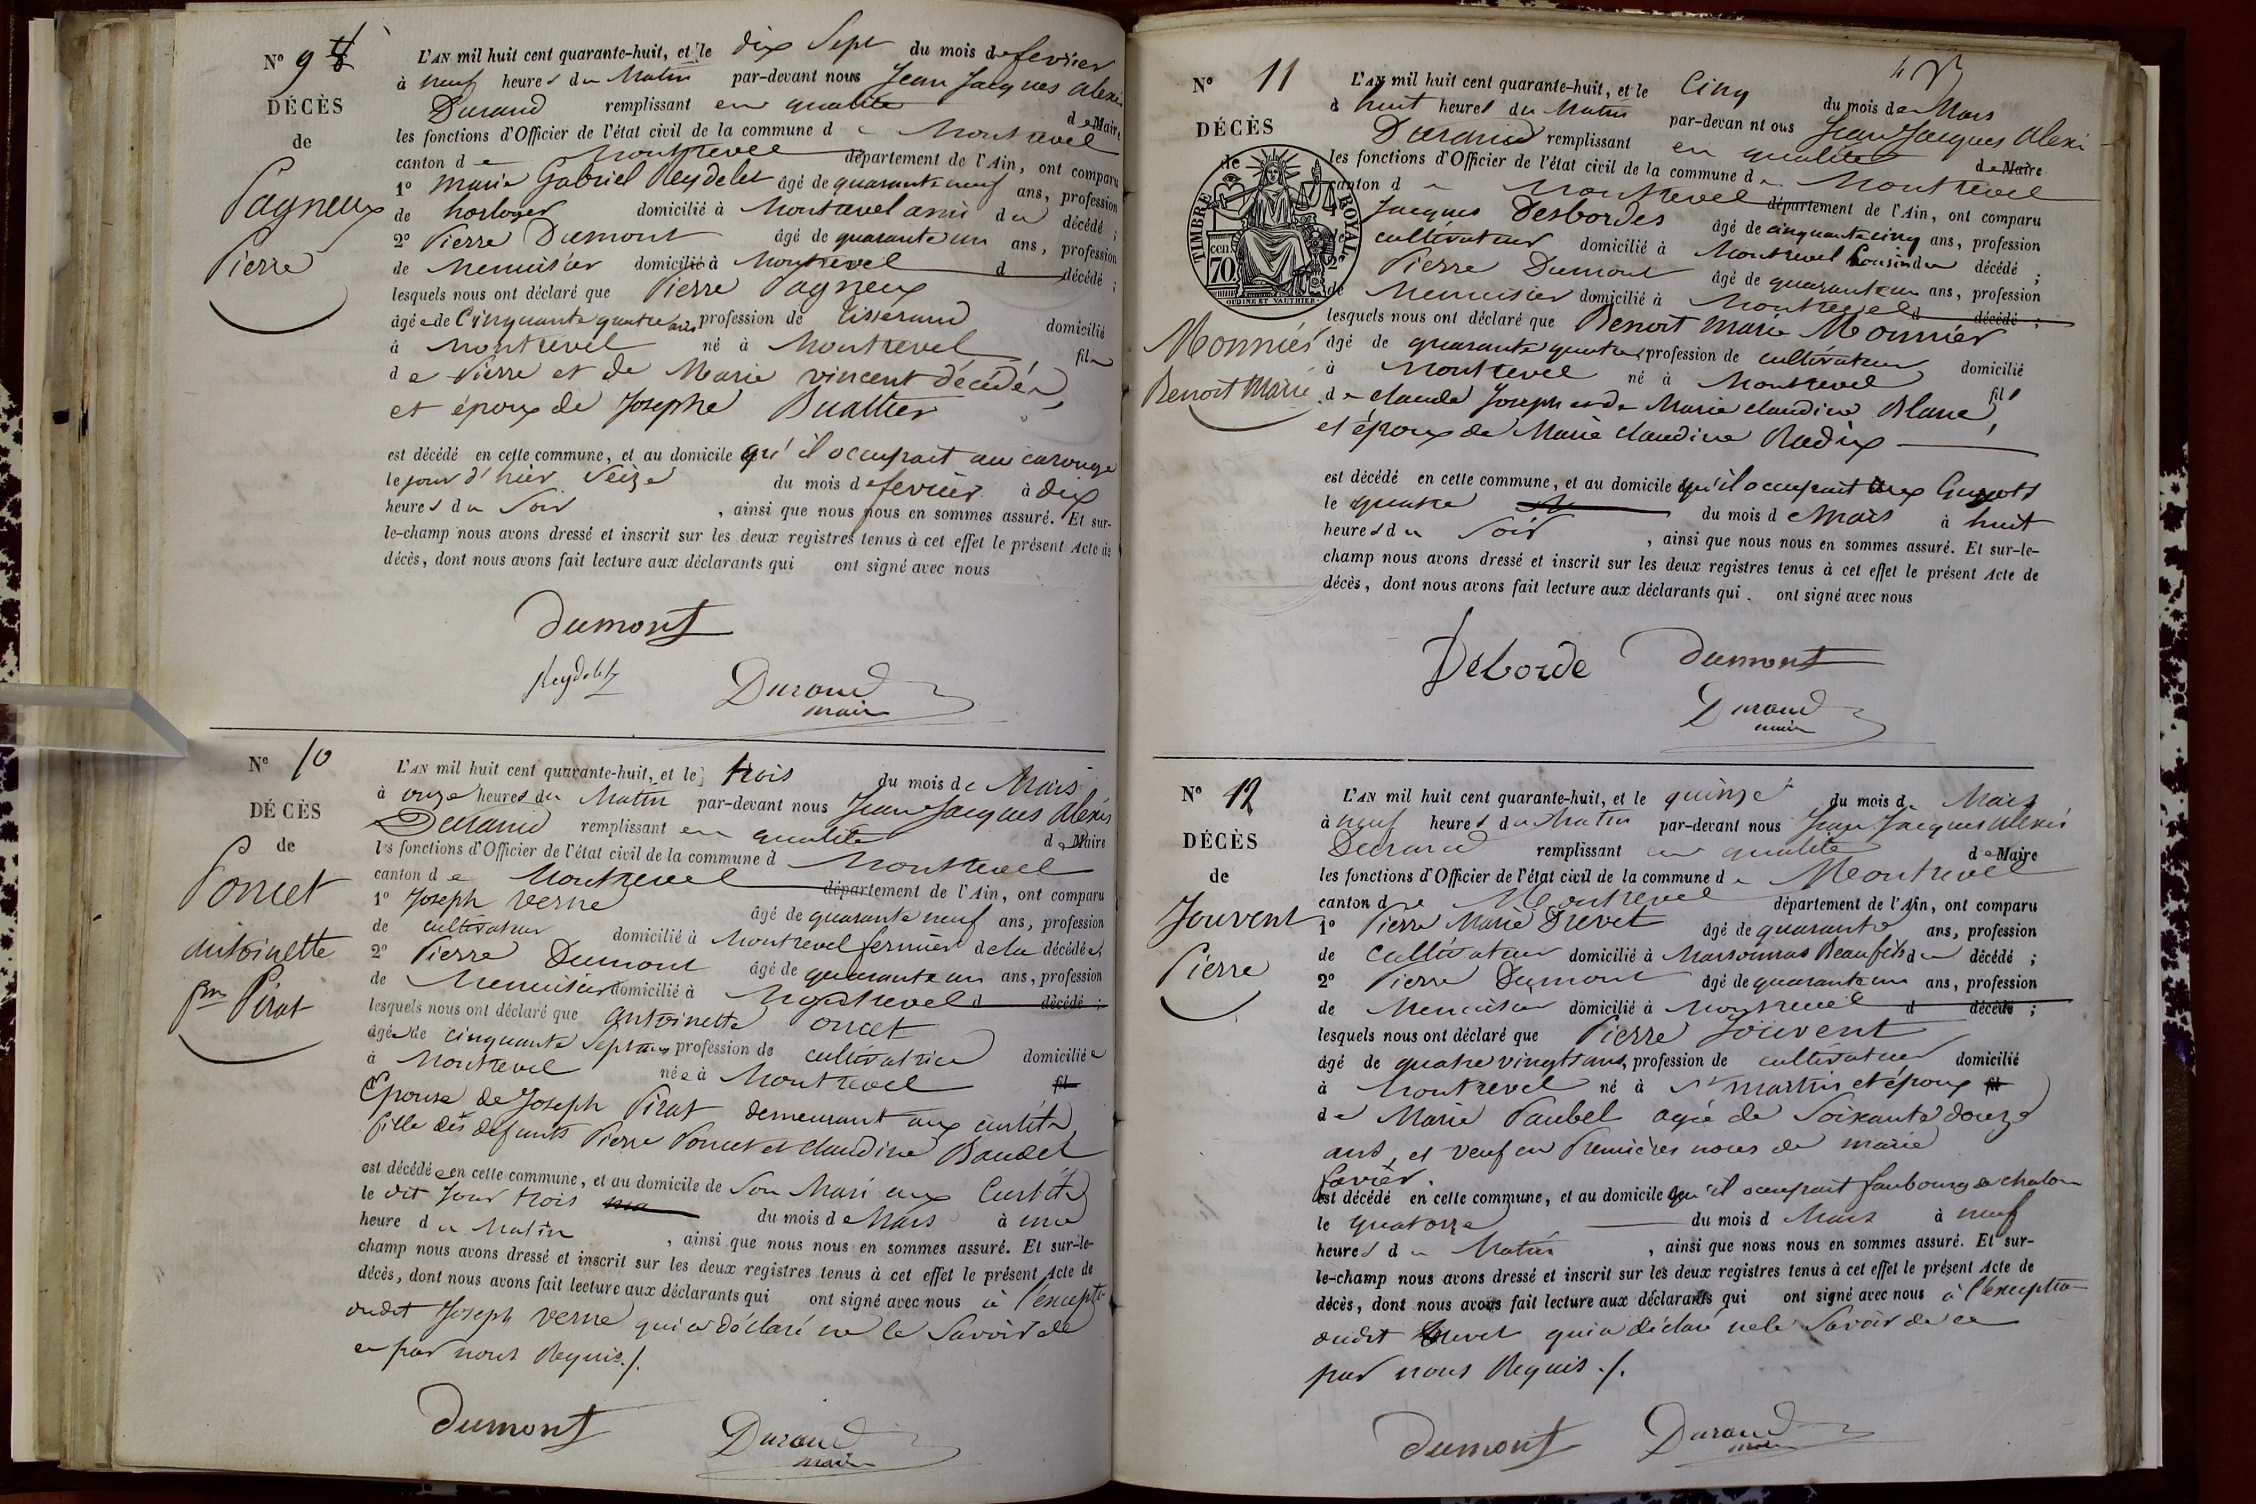 N° 9
DÉCÈS
de
Pagneux
Pierre
L'AN mil huit cent quarante-huit, et le dix Sept du mois de fevrier
à neuf heures du Matin par-devant nous Jean Jacques Alexis
Durand remplissant en qualité de Maire
les fonctions d'Officier de l'état civil de la commune de Montrevel
canton de Montrevel département de l'Ain, ont comparu
1° Marie Gabriel Reydelet âgé de quarante neuf ans, profession
de horloger domicilié à Montrevel amis du décédé ;
2° Pierre Dumont âgé de quarante un ans, profession
de Menuisier domicilié à Montrevel d décédé ;
lesquels nous ont déclaré que Pierre Pagneux
âgé de Cinquante quatre ans profession de tisserand domicilié
à Montrevel né à Montrevel, fils
de Pierre et de Marie vincent décédés,
et époux de Josephe Buathier
est décédé en cette commune, et au domicile qu'il occupait au carouge
le jour d'hier Seize du mois de fevrier à dix
heures du Soir, ainsi que nous nous en sommes assuré. Et sur-
le-champ nous avons dressé et inscrit sur les deux registres tenus à cet effet le présent Acte de
décès, dont nous avons fait lecture aux déclarants qui ont signé avec nous
Dumont
Reydelet Durand
maire
N° 10
DÉCÈS
de
Poncet
Antoinette
fme Pirat
L'AN mil huit cent quarante-huit, et le trois du mois de Mars
à onze heures du Matin par-devant nous Jean Jacques Alexis
Durand remplissant en qualité de Maire
les fonctions d'Officier de l'état civil de la commune d Montrevel
canton de Montrevel département de l'Ain, ont comparu
1° Joseph Verne âgé de quarante neuf ans, profession
de cultivateur domicilié à Montrevel fermier de la décédée ;
2° Pierre Dumont âgé de quarante un ans, profession
de Menuisier domicilié à Montrevel d décédé ;
lesquels nous ont déclaré que Antoinette Poncet
âgée de cinquante Sept ans profession de cultivatrice domiciliée
à Montrevel née à Montrevel fil
Epouse de Joseph Pirat demeurant aux
fille des défunts Pierre Poncet et Claudine Baudet
est décédée en cette commune, et au domicile de Son Mari aux
le dit Jour trois du mois de Mars à une
heure du Matin, ainsi que nous nous en sommes assuré. Et sur-le-
champ nous avons dressé et inscrit sur les deux registres tenus à cet effet le présent Acte de
décès, dont nous avons fait lecture aux déclarants qui ont signé avec nous à l'exceptn
dudit Joseph Verne qui a déclaré ne le Savoir de
ce par nous Requis./.
Dumont Durand
maire
N° 11
DÉCÈS
de
TIMBRE ROYAL
70 cen
OUDINÉ ET VAUTHIER
Monnier
Benoit Marie
L'AN mil huit cent quarante-huit, et le Cinq du mois de Mars
à huit heures du Matin par-devan nt ous Jean Jacques Alexi
Durand remplissant en qualité de Maire
les fonctions d'Officier de l'état civil de la commune de Montrevel
canton de Montrevel département de l'Ain, ont comparu
Jacques Desbordes âgé de cinquante cinq ans, profession
de cultivateur domicilié à Montrevel Cousin du décédé ;
2° Pierre Dumont âgé de quarante un ans, profession
de Menuisier domicilié à Montrevel d décédé ;
lesquels nous ont déclaré que Benoit Marie Monnier
âgé de quarante quatre profession de cultivateur domicilié
à Montrevel né à Montrevel fils
de Claude Joseph et de Marie Claudine Blanc,
et époux de Marie Claudine Radix
est décédé en cette commune, et au domicile qu'il occupait aux
le quatre du mois de Mars à huit
heures du Soir, ainsi que nous nous en sommes assuré. Et sur-le-
champ nous avons dressé et inscrit sur les deux registres tenus à cet effet le présent Acte de
décès, dont nous avons fait lecture aux déclarants qui ont signé avec nous
Déborde Dumont
Durand
maire
N° 12
DÉCÈS
de
Jouvent
Pierre
L'AN mil huit cent quarante-huit, et le quinze du mois de Mars
à neuf heures du Matin par-devant nous Jean Jacques Alexis
Durand remplissant en qualité de Maire
les fonctions d'Officier de l'état civil de la commune de Montrevel
canton de Montrevel département de l'Ain, ont comparu
1° Pierre Marie Drevet âgé de quarante ans, profession
de Cultivateur domicilié à Marsonnas Beaufils du décédé ;
2° Pierre Dumont âgé de quarante un ans, profession
de Menuisier domicilié à Montrevel d décédé ;
lesquels nous ont déclaré que Pierre Jouvent
âgé de quatre vingts ans, profession de cultivateur domicilié
à Montrevel né à St Martin et époux fil
de Marie Paubel agée de Soixante douze
ans, et veuf en Premières noces de Marie
favier.
est décédé en cette commune, et au domicile qu'il occupait faubourg de chalon
le quatorze du mois d Mars à neuf
heures du Matin, ainsi que nous nous en sommes assuré. Et sur-
le-champ nous avons dressé et inscrit sur les deux registres tenus à cet effet le présent Acte de
décès, dont nous avons fait lecture aux déclarants qui ont signé avec nous à l'exception
dudit Drevet qui a déclaré ne le Savoir de ce
par nous Requis ./.
Dumont Durand
maire